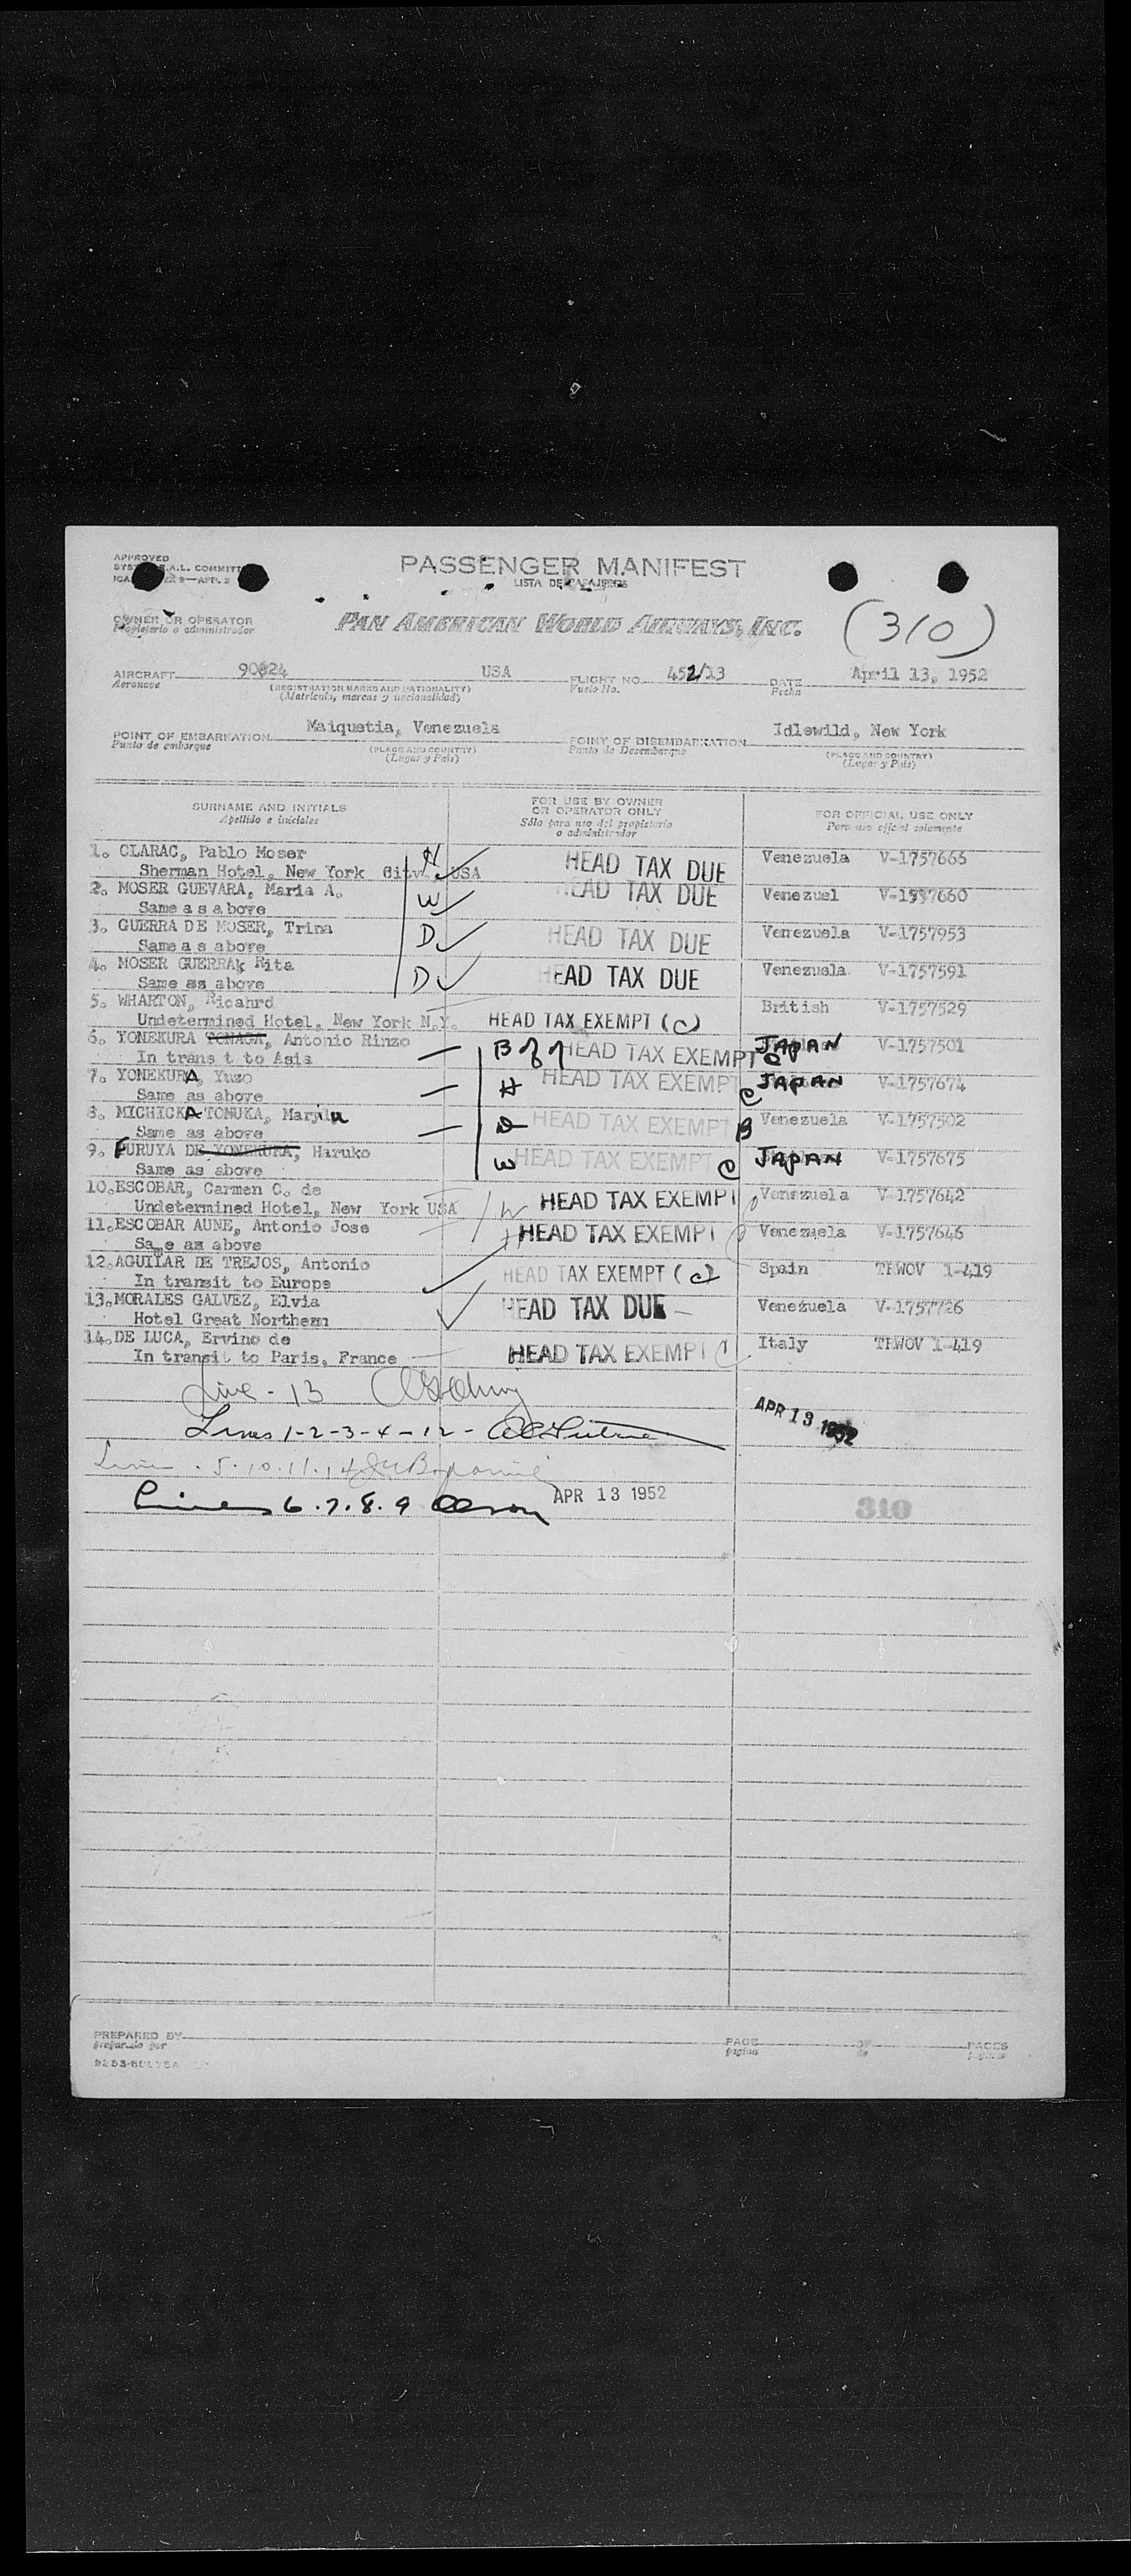 APPROVED
PASSENGER MANIFEST
LISTA DE PASAJEROS
OWNER OR OPERATOR
Propietario o administrador
PAN AMERICAN WORLD AIRWAYS, INC.
(310)
AIRCRAFT 90824 USA FLIGHT NO. 452/13 DATE April 13, 1952
Aeronave (REGISTRATION MARKS AND NATIONALITY) Vuelo No. Fecha
(Matricula, marcas y nacionalidad)
POINT OF EMBARKATION Maiquetia, Venezuela POINT OF DISEMBARKATION Idlewild, New York
Punto de embarque (PLACE AND COUNTRY) Punto de Desembarque (PLACE AND COUNTRY)
(Lugar y Pais) (Lugar y Pais)
SURNAME AND INITIALS FOR USE BY OWNER OR OPERATOR ONLY FOR OFFICIAL USE ONLY
Apellido e iniciales Sólo para uso del propietario o administrador Para uso oficial solamente
1. CLARAC, Pablo Moser H HEAD TAX DUE Venezuela V-1757665
Sherman Hotel, New York City, USA
2. MOSER GUEVARA, Maria A. W HEAD TAX DUE Venezuel V-1757660
Same a s a bove
3. GUERRA DE MOSER, Trina D HEAD TAX DUE Venezuela V-1757953
Same a s above
4. MOSER GUERRA, Rita D HEAD TAX DUE Venezuela V-1757591
Same as above
5. WHARTON, Ricahrd HEAD TAX EXEMPT (C) British V-1757529
Undetermined Hotel, New York N.Y.
6. YONEKURA TONAGA, Antonio Rinzo HEAD TAX EXEMPT C JAPAN V-1757501
In trans t to Asia
7. YONEKURA, Yuzo H HEAD TAX EXEMPT C JAPAN V-1757674
Same as above
8. MICHICKA TOMUKA, Marylu D HEAD TAX EXEMPT B Venezuela V-1757502
Same as above
9. FURUYA DE YONEKURA, Haruko W HEAD TAX EXEMPT C JAPAN V-1757675
Same as above
10.ESCOBAR, Carmen C. de W HEAD TAX EXEMPT Venezuela V-1757642
Undetermined Hotel, New York USA
11.ESCOBAR AUNE, Antonio Jose H HEAD TAX EXEMPT Venezuela V-1757646
Same as above
12.AGUILAR DE TREJOS, Antonio HEAD TAX EXEMPT (C) Spain TRWOV 1-419
In transit to Europe
13.MORALES GALVEZ, Elvia HEAD TAX DUE Venezuela V-1757726
Hotel Great Northern
14.DE LUCA, Ervino de HEAD TAX EXEMPT C Italy TRWOV 1-419
In transit to Paris, France
Line - 13
APR 13 1952
Lines 1-2-3-4-12-
5.10.11.14
Lines 6.7.8.9 APR 13 1952
310
PREPARED BY PAGE OF PAGES
preparado por pagina de paginas